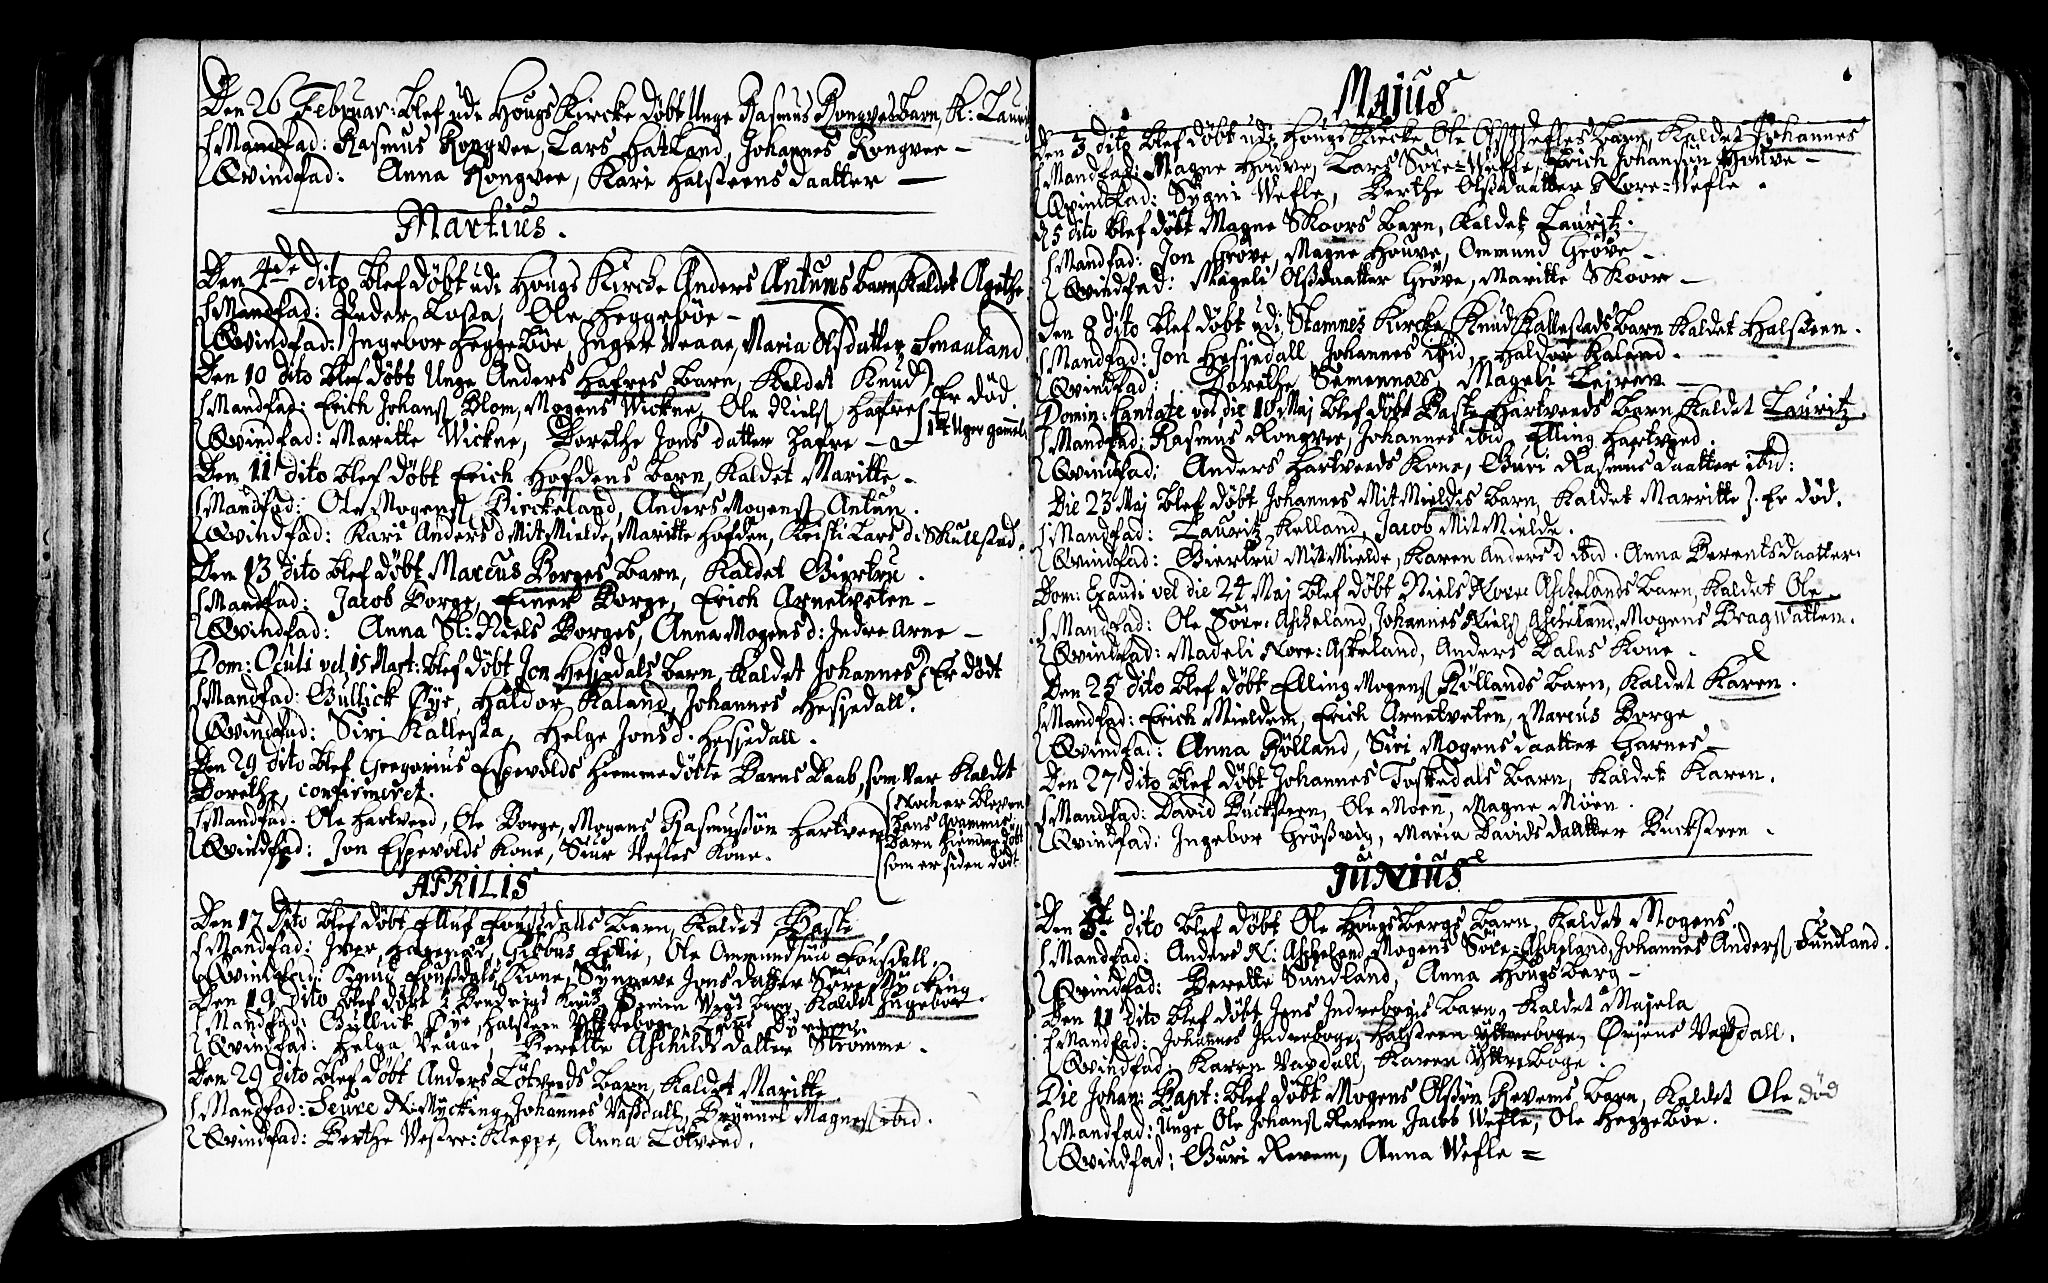 Den 26 Februar: blef udi Hougs Kircke døbt Unge Rasmus Rongves barn, K: Laur
Mandfad: Rasmus Rongvee, Lars Hatland, Johannes Rongvee
Qvindfad: Anna Rongvee, Kari Halsteens daatter
Martius.
Den 4de dito blef døbt udi Hougs Kircke Anders Antuns barn Kaldet Agethe
Mandfad: Peder Tossa, Ole Heggebøe
Qvindfad: Ingebor Heggebøe, Inger Veaae, Maria Olsdatter Smaaland
Den 10 dito blef døbt Unge Anders Hafres barn, Kaldet Knud Er død
Mandfad: Erich Johans Blom, Mogens Wickne, Ole Niels Hafre 14 Uger gammel
Qvindfad: Maritte Wickne, Dorethe Jons datter Hafre
Den 11 dito blef døbt Erich Hofdens barn, Kaldet Maritte
Mandfad: Ole Mogens Birckeland, Anders Mogens Antun.
Qvindfad: Kari Anders d MitMielde, Maritte Hofden, Kristi Lars d: Skulstad.
Den 13 dito blef døbt Marcus Borges barn, Kaldet Giertru.
Mandfad: Jacob Borge, Einer Borge, Erich Arnetveten
Qvindfad: Anna Sl: Niels Borges, Anna Mogens d: Indre Arne
Dom: Oculi vel, 15 Mart: blef døbt Jon Hesjedals barn, Kaldet Johannes Er dødt
Mandfad: Gullick Øye, Haldor Kaland, Johannes Hesjedall.
Qvindfad: Siri Kallesta, Helge Jons d. Hesjedall.
Den 29 dito blef Gregorius Espevolds hiemmedøbte Barns Daab, som var Kaldet
Dorethe, confirmeret.
Mandfad: Ole Hartveed, Ole Borge, Mogens Rasmussøn Hartveed
Qvindfad: Jon Espevolds Kone, Siur Nefles Kone.
Noch er bleven
Hans Qvammes
Barn hiemme døbt
som er siden dødt
APRILIS
Den 12 dito blef døbt Elluf Fossdalls barn, Kaldet Baste
Mandfad: Iver, Ole Ommundsøn Fossdall.
Qvindfad: Knud Fossdals Kone, Synneve Jons datter Søre Mycking
Den 19 dito blef døbt barn Kaldet Ingebor.
Mandfad: Gullick Øye, Halsteen Yttreboge
Qvindfad: Helga Veaae, Berette Aschilds datter Strømme.
Den 29 dito blef døbt Anders Løtveeds barn, Kaldet Maritte
Mandfad: Seure N: Mycking, Johannes Vassdall, Brynnel Magnes ibid.
Qvindfad: Berthe Vestre: Kleppe, Anna Løtveed.
Majus
Den 3 dito blef døbt udi Hougs Kircke Ole barn, Kaldet Johannes
Mandfad: Magne Houve, Lars Søre=Nefle, Erich Johansøn Houve
Qvindfad: Sygni Wefle, Berthe Olssdaatter Nore=Wefle.
d 5 dito blef døbt Magne Skoors barn, Kaldet Lauritz.
Mandfad: Jon Grøve, Magne Houve, Ommund Grøve
Qvindfad: Mageli Olssdaatter Grøve, Maritte Skoor
Den 8 dito blef døbt udi Stamnes Kircke Knud Kallestads barn Kaldet Halsteen.
Mandfad: Jon Hesjedall, Johannes ibid, Haldor Kaland.
Qvindfad: Dorethe Semennæs, Mageli Teiren
Domin: Cantate vel die 10 Maj blef døbt Baste Hartveeds barn Kaldet Lauritz.
Mandfad: Rasmus Rongvee, Johannes ibid, Elling Hartveed.
Qvindfad: Anders Hartveeds Kone, Guri Rasmus daatter ibid:
Die 23 Maj blef døbt Johannes MitMieldes barn, Kaldet Marritte. Er død.
Mandfad: Lauritz Kelland, Jacob MitMielde.
Qvindfad: Giertru MitMielde, Karen Anders d ibid. Anna Berentsdaatter.
Dom: Exaudi vel die 24 Maj blef døbt Niels Nore Aschelands barn, Kaldet Ole
Mandfad: Ole Søre: Ascheland, Johannes Niels Ascheland, Mogens Bragwatten.
Qvindfad: Madeli Nore: Askeland, Anders Dales Kone.
Den 25 dito blef døbt Elling Mogens Røllands barn, Kaldet Karen.
Mandfad: Erich Mieldem, Erich Arnetveten, Marcus Borge
Qvindfad: Anna Rølland, Siri Mogens daatter Garnes
Den 27 dito blef døbt Johannes Toskedals barn, Kaldet Karen.
Mandfad: David Bucksteen, Ole Moen, Magne Moen.
Qvindfad: Ingebor Grøsvig, Maria Davids daatter Bucksteen.
JUNIUS
Den 5te dito blef døbt Ole Hougsbergs barn, Kaldet Mogens
Mandfad: Anders N: Ascheland, Mogens Søre=Ascheland, Johannes Anders Sundland.
Qvindfad: Berette Sundland, Anna Hougsberg
Den 11 dito blef døbt Jens Indreboges barn, Kaldet Majela
Mandfad: Johannes Indreboge, Halsteen Yttreboge, Ørjens Vaxdall.
Qvindfad: Karen Vaxdall, Karen Yttreboge.
Die Johan: Bapt: blef døbt Mogens Olssøn Revems barn, Kaldet Ole død
Mandfad: Unge Ole Johans Revem Jacob Wefle, Ole Heggebøe.
Qvindfad: Guri Revem, Anna Wefle =